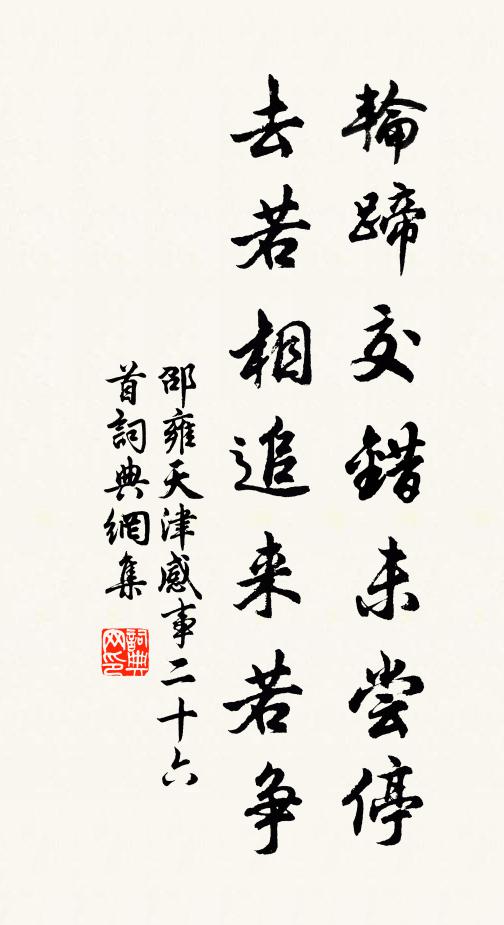 輪蹄交錯未尝停
去若相追来若争
邵雍天津感事二十六
首詞典網集
詞典网印